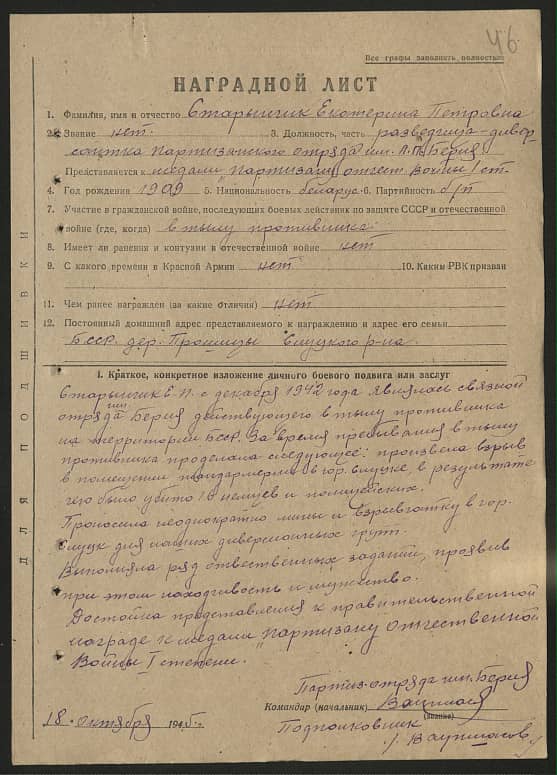 46
Все графы заполнять полностью
НАГРАДНОЙ ЛИСТ
1. Фамилия, имя и отчество Старынчик Екатерина Петровна
2. Звание нет. 3. Должность, часть разведчица-дивер
сантка партизанского отряда им. Л.П. Берия
Представляется к медали партизану отечест. войны I ст.
4. Год рождения 1909 5. Национальность беларус. 6. Партийность б/п
7. Участие в гражданской войне, последующих боевых действиях по защите СССР и отечественной
войне (где, когда) в тылу противника.
8. Имеет ли ранения и контузии в отечественной войне нет
9. С какого времени в Красной Армии нет 10. Каким РВК призван
11. Чем ранее награжден (за какие отличия) нет
12. Постоянный домашний адрес представляемого к награждению и адрес его семьи
БССР. дер. Прощицы Слуцкого р-на.
I. Краткое, конкретное изложение личного боевого подвига или заслуг
Старынчик Е.П. с декабря 1942 года являлась связной
отряда им Берия действующего в тылу противника
на территории БССР. За время пребывания в тылу
противника проделала следующее: произвела взрыв
в помещении жандармерии в гор. Слуцке, в результате
чего было убито 10 немцев и полицейских.
Проносила неоднократно мины и взрывчатку в гор.
Слуцк для наших диверсионных групп.
Выполняла ряд отвественных заданий, проявив
при этом находчивость и мужество.
Достойна представления к правительственной
награде к медали "партизану Отечественной
Войны I степени.
Партиз. отряда им. Берия
Командир (начальник)
(звание)
Подполковник
/Ваупшасов/
18. октября 194 г.
ДЛЯ ПОДШИВКИ